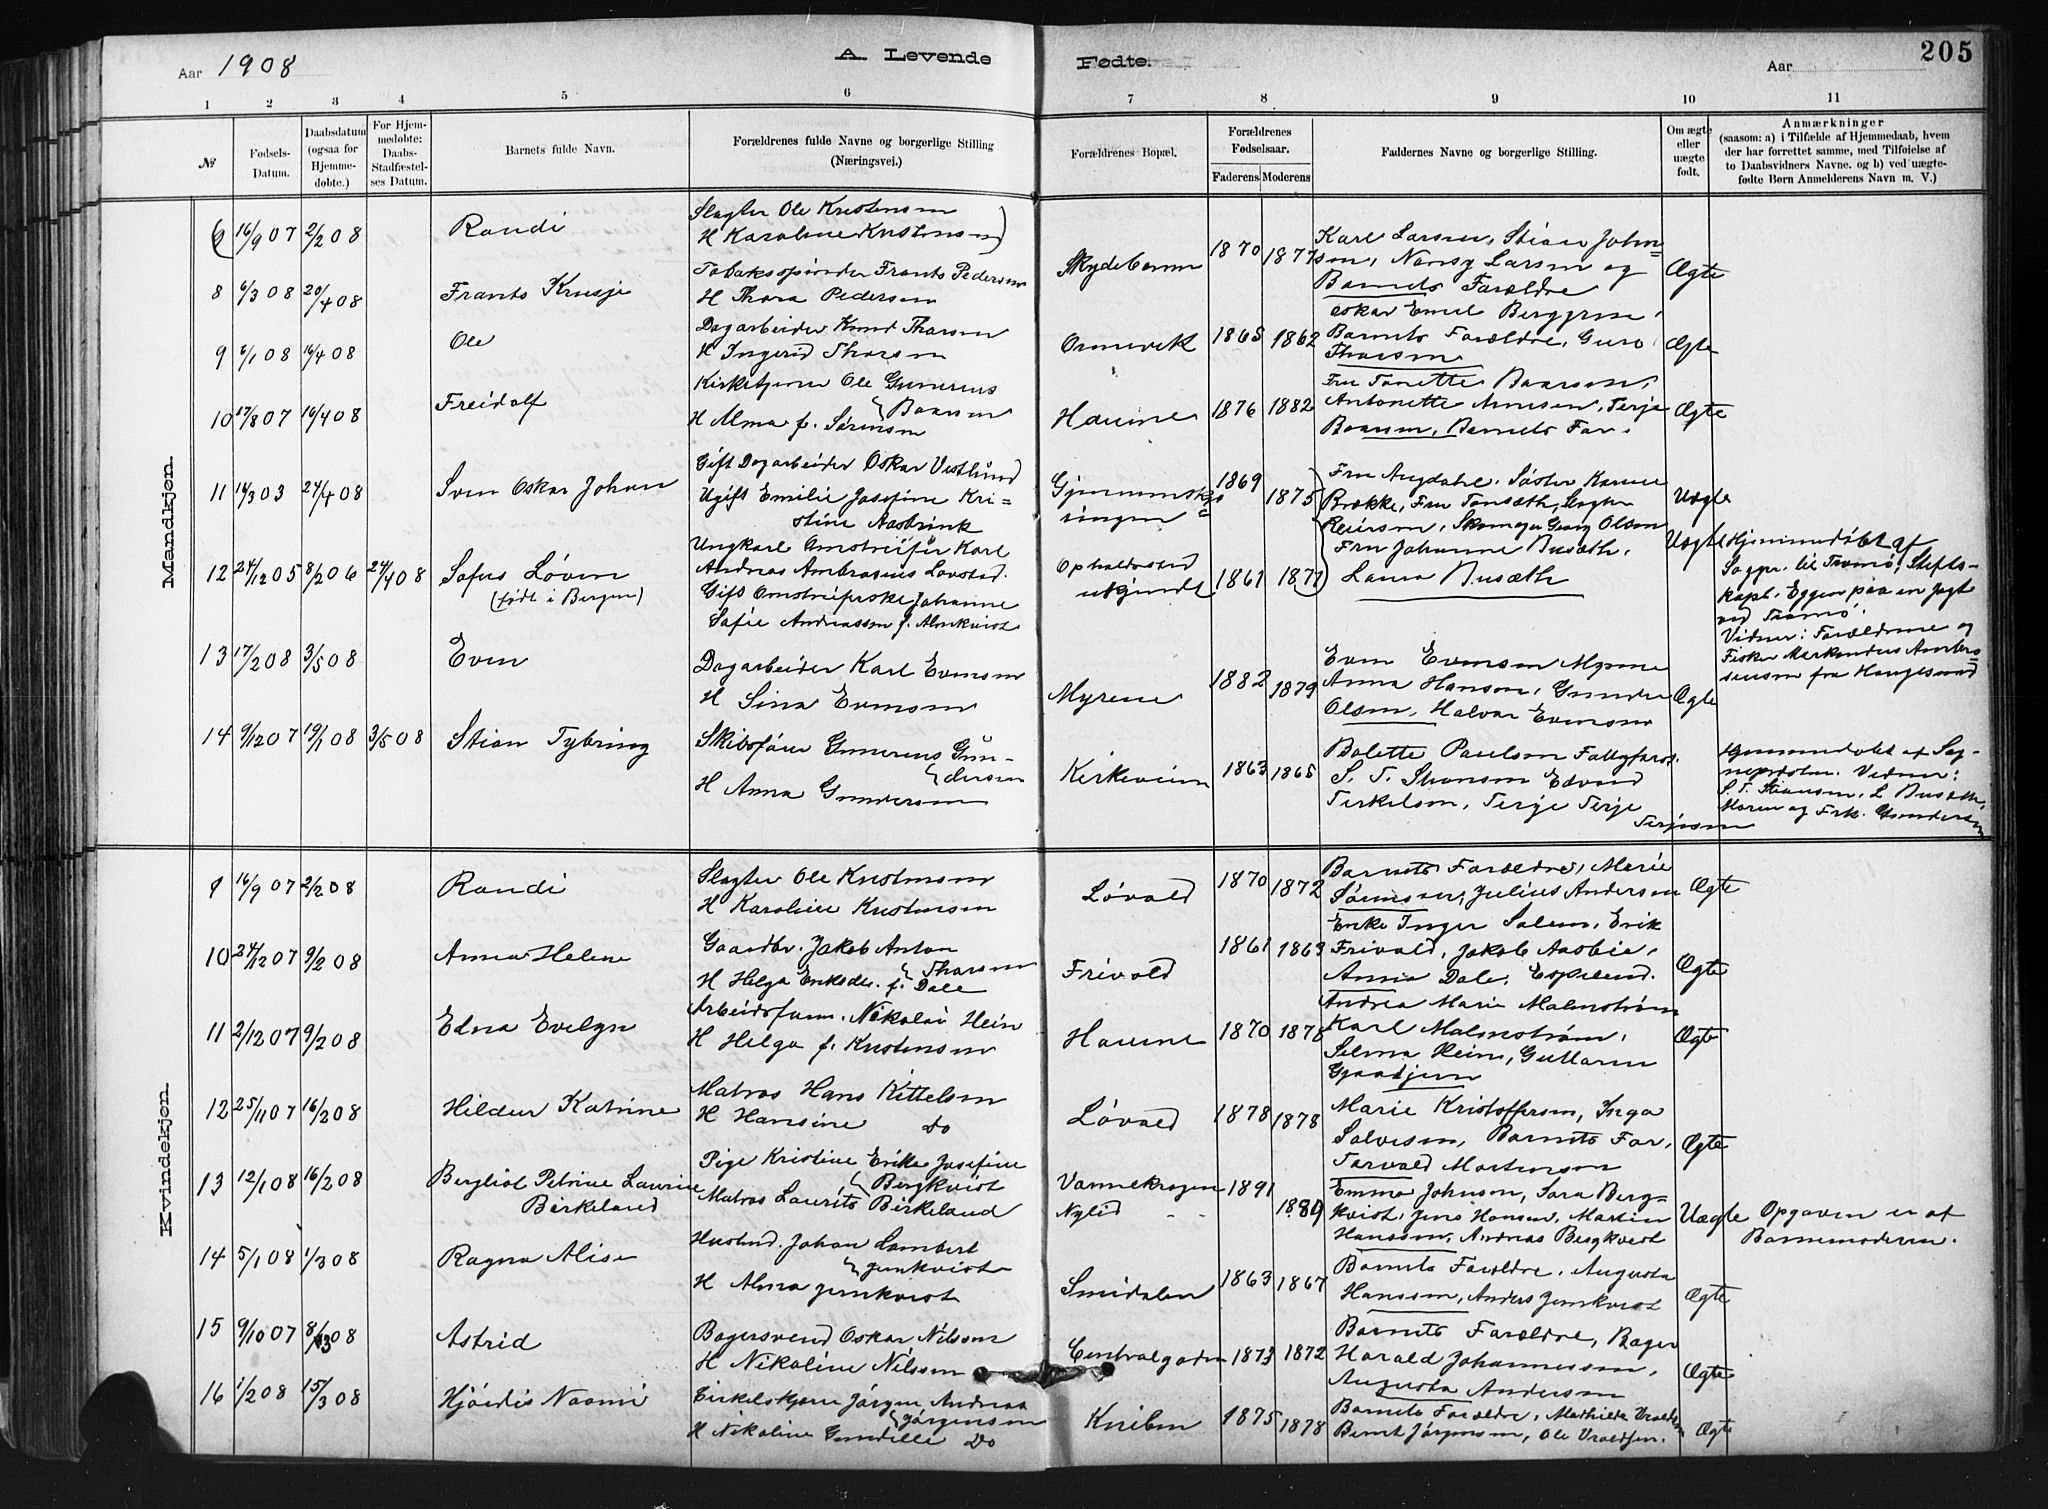 Aar 1908
A. Levende
Fødte.
Aar
205
1 2 3 4 5 6 7 8 9 10 11
№
Fødsels-
Datum.
Daabsdatum
(ogsaa for
Hjemme-
døbte.)
For Hjem-
medøbte:
Daabs-
Stadfæstel-
ses Datum.
Barnets fulde Navn.
Forældrenes fulde Navne og borgerlige Stilling
(Næringsvei.)
Forældrenes Bopæl.
Forældrenes
Fødselsaar.
Faderens Moderens
Faddernes Navne og borgerlige Stilling.
Om ægte
eller
uægte
født.
Anmærkninger
(saasom: a) i Tilfælde af Hjemmedaab, hvem
der har forrettet samme, med Tilføielse af
to Daabsvidners Navne. og b) ved uægte-
fødte Børn Anmelderens Navn m. V.)
Mandkjøn.
(9 16/9 07 2/2 08 Randi
Slagter Ole Kristensen
H Karoline Kristensen)
8 6/3 08 20/4 08 Frants Krusje
Tobaksspinder Frants Pedersen
H Thora Pedersen
Skydebanen 1870 1877
Karl Larsen, Stian John=
sen, Nancy Larsen og
Barnets Forældre
Ægte
9 6/1 08 16/4 08 Ole
Dagarbeider Knud Tharsen
H Ingerid Tharsen
Ormevik 1865 1862
Oskar Emil Berggren,
Barnets Forældre, Guro
Tharsen
Ægte
10 17/8 07 16/4 08 Freidolf
Kirketjener Ole Gunerius
Baarsen
H Alma f. Sørensen
Havene 1876 1882
Fru Tonette Baarsen,
Antonette Arnesen, Terje
Baarsen, Barnets For.
Ægte
11 16/3 03 24/4 08 Sven Oskar Johan
Gift Dagarbeider Oskar Vestlund
Ugift Emilie Josefine Kri=
stine Aasbrink
1869 1875
Fru Angdahl, Søster Karine
Brække, Fru Tonsæth, Slagter
Reiersen, Skomager Georg Olsen
Uægte
12 24/12 05 8/2 06 24/4 08 Sofus Løven
(født i Bergen)
Ungkarl Omstreifer Karl
Andreas Ambrosius Lovstad.
Gift Omstreiferske Johanne
Sofie Andreassen f. Almkvist
Opholdssted
ubekjendt 1861 1871
Fru Johanne Busæth,
Laura Busæth
Uægte
Hjemmedøbt af
Sogpr. til Tromsø, Stifts-
kapl. Eggen paa en Jagt
ved Tromsø.
Vidner: Forældrene og
Fisker
fra Haugesund
13 17/2 08 3/5 08 Even
Dagarbeider Karl Evensen
H Sina Evensen
Myrene 1882 1879
Even Evensen Myrene
Anna Hansen, Gunder
Olsen, Halvor Evensen
Ægte
14 9/12 07 19/1 08 3/5 08 Stian Tybring
Skibsfører Gunerius Gun-
dersen
H Anna Gundersen
Kirkeveien 1863 1865
Bolette Paulsen
S. T. Stiansen Edvard
Terkelsen, Terje Terje
Terjesen
Hjemmedøbt af Sog-
nepresten. Vidner:
S. T. Stiansen, L Busæth,
Maren og Frk. Gundersen
Kvindekjøn.
9 16/9 07 2/2 08 Randi
Slagter Ole Kristensen
H Karoline Kristensen
Løvold 1870 1872
Barnets Forældre, Marie
Sørensen, Julius Andersen
Ægte
10 24/12 07 9/2 08 Anna Helene
Gaardbr. Jakob Anton
Tharsen
H Helga Eriksdtr. f. Dale
Frivold 1861 1863
Enke Inger Salem, Erik
Frivold, Jakob Aasbie,
Anna Dale, Espelund.
Ægte
11 2/12 07 9/2 08 Edna Evelyn
Arbeidsform. Nikolai Hein
H Helga f. Kristensen
Havene 1870 1878
Andrea Marie Malmstrøm
Karl Malmstrøm,
Selma Hein, Guttorm
Gjaatjern
Ægte
12 25/11 07 16/2 08 Hildur Katrine
Matros Hans Kittelsen
H Hansine Do
Løvold 1878 1878
Marie Kristoffersen, Inga
Salvesen, Barnets For,
Torvald Mortensen
Ægte
13 12/1 08 16/2 08 Bergliot Petrine Laurine
Birkeland
Pige Kristine Erika Josefine
Bergkvist
Matros Laurits Birkeland
Vannekragen 1891
Nylid 1889
Emma Johnsen, Sara Berg=
kvist, Jens Hansen, Martin
Hanssen, Andreas Bergkvist
Uægte
Opgaven er af
Barnemoderen.
14 5/1 08 1/3 08 Ragna Alise
Johan Lambert
Jernkvist
H Alma Jernkvist
Smidalen 1863 1867
Barnets Forældre, Augusta
Hanssen, Anders Jernkvist
Ægte
15 9/10 07 8/3 08 Astrid
Bagersvend Oskar Nilssen
H Nikoline Nilssen
Centralgaden 1873 1872
Barnets Forældre, Bager
Harald Johannessen,
Augusta Andersen
Ægte
16 1/2 08 15/3 08 Hjørdis Naomi
Cirkelskjærer Jørgen Andreas
Jørgensen
H Nikoline Gundille Do
Kniben 1875 1878
Barnets Forældre, Mathilde Vraldsen
Bernt Jørgensen, Ole Vraldsen.
Ægte